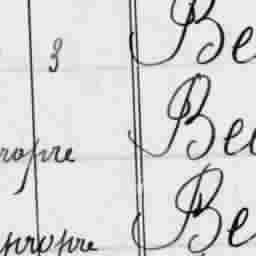 3 Be
ropre Bea
propre Be